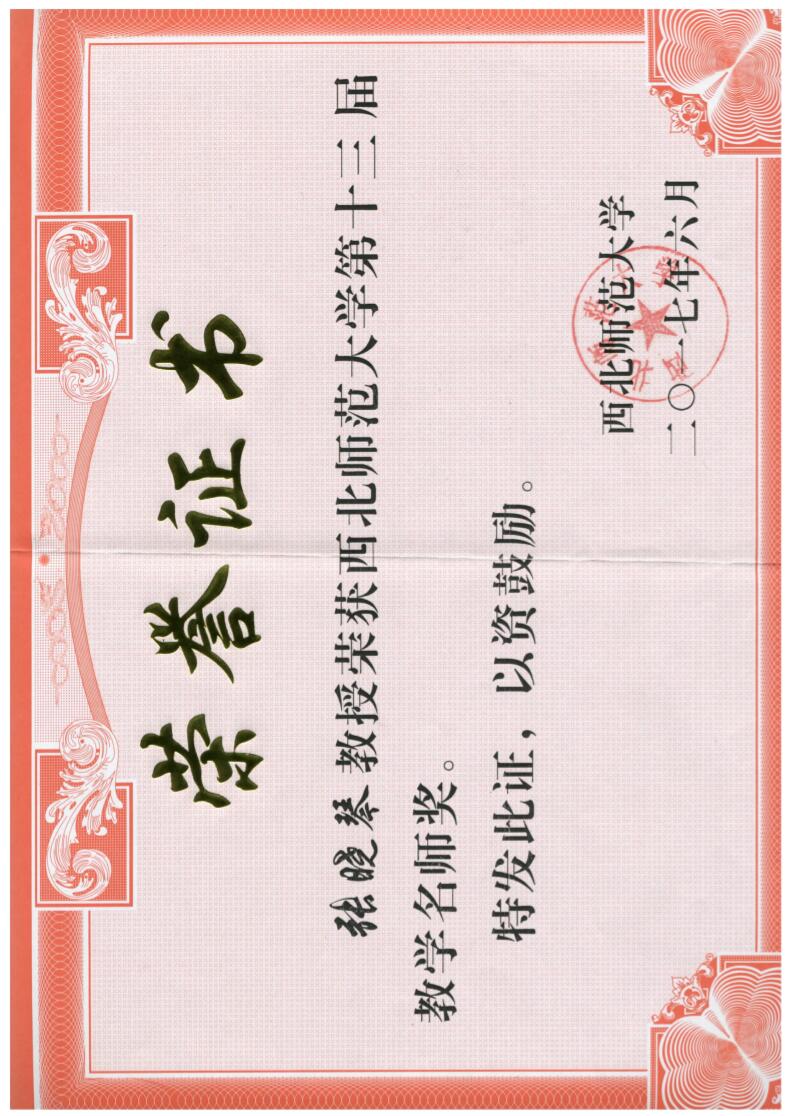 荣誉证书
张晓琴教授荣获西北师范大学第十三届
教学名师奖。
特发此证，以资鼓励。
西北师范大学
二〇一七年六月
西北师范大学